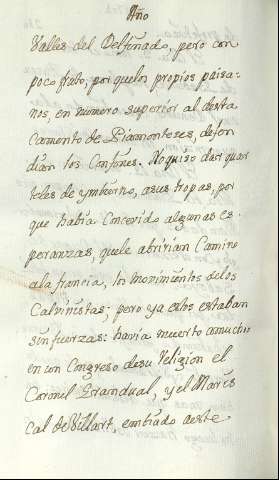 Año
Valles del Delfinado, pero con
poco fruto, por quelos propios paisa-
nos, en numero superior al desta-
camento de Piamonteses, defen-
dian los Confines. No quiso dar quar-
teles de ymbierno, asus tropas, por
que havia Concevido algunas es-
peranzas, quele abririan Camino
ala francia, los movimientos delos
Calvinistas; pero ya estos estaban
sin fuerzas: havia muerto amuchos
en un Congreso desu Religion el
Coronel Grandual, y el Maris
cal de Villart, embiado deste